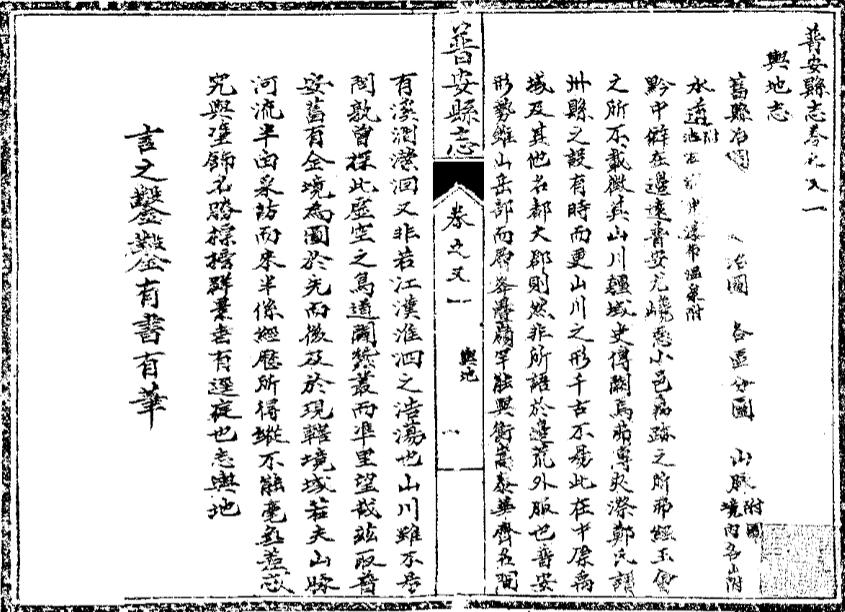 普安縣志卷之又一
輿地志
舊縣治圖 治圖 各區分圖 山脈附圖境內各山附
水道附 溫泉附
黔中僻在邊遠普安尤嶢惡小邑病跡之所弗經玉
之所不載微其山川疆域史傳闕焉弗專夾漈鄭氏謂
州縣之設有時而更山川之形千古不易此在中原禹
域及其他名都大郡則然非所語於邊荒外服也普安
形勢雖山岳部而層峯疊嶺罕能與衡嵩泰華齊名間
有溪澗瀠洄又非若江漢淮泗之浩蕩也山川雖不
間孰曾探此壓空之鳥道闢蠶叢而準里望哉茲取普
安舊有全境為圖於先而後及於現轄境域若夫山脈
河流半由采訪而來半係經歷所得縱不能毫無蓋
究與虛飾名勝採摭群景者有逕庭也志輿地
言之鑿鑿有書有華
普安縣志
卷之又一
輿地
一